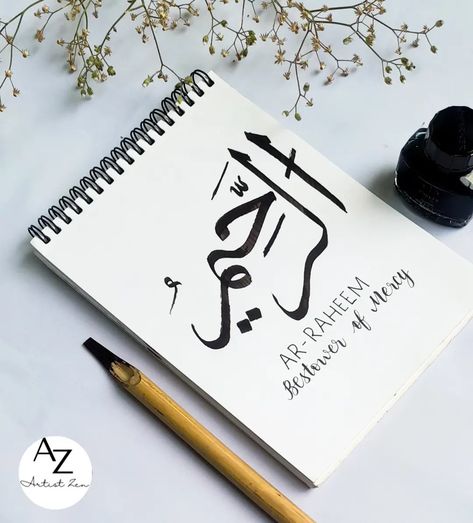 الرَّحِيمُ
AR-RAHEEM
Bestower of Mercy
AZ
Artist Zen